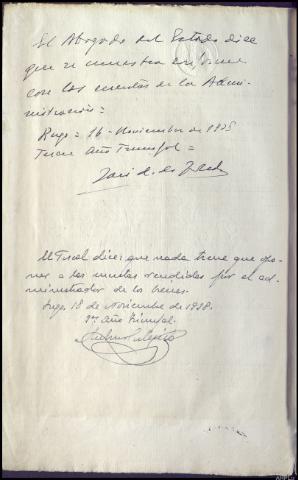 El Abogado del Estado dice
que se muestra conforme
con las cuentas de la Admi-
nistración =
Lugo = 16 - Noviembre de 1938
Tercer Año Triunfal =
José
El Fiscal dice: que nada tiene que opo-
ner a las cuentas rendidas por el ad-
ministrador de los bienes.
Lugo, 18 de Noviembre de 1938.
3er Año Triunfal.